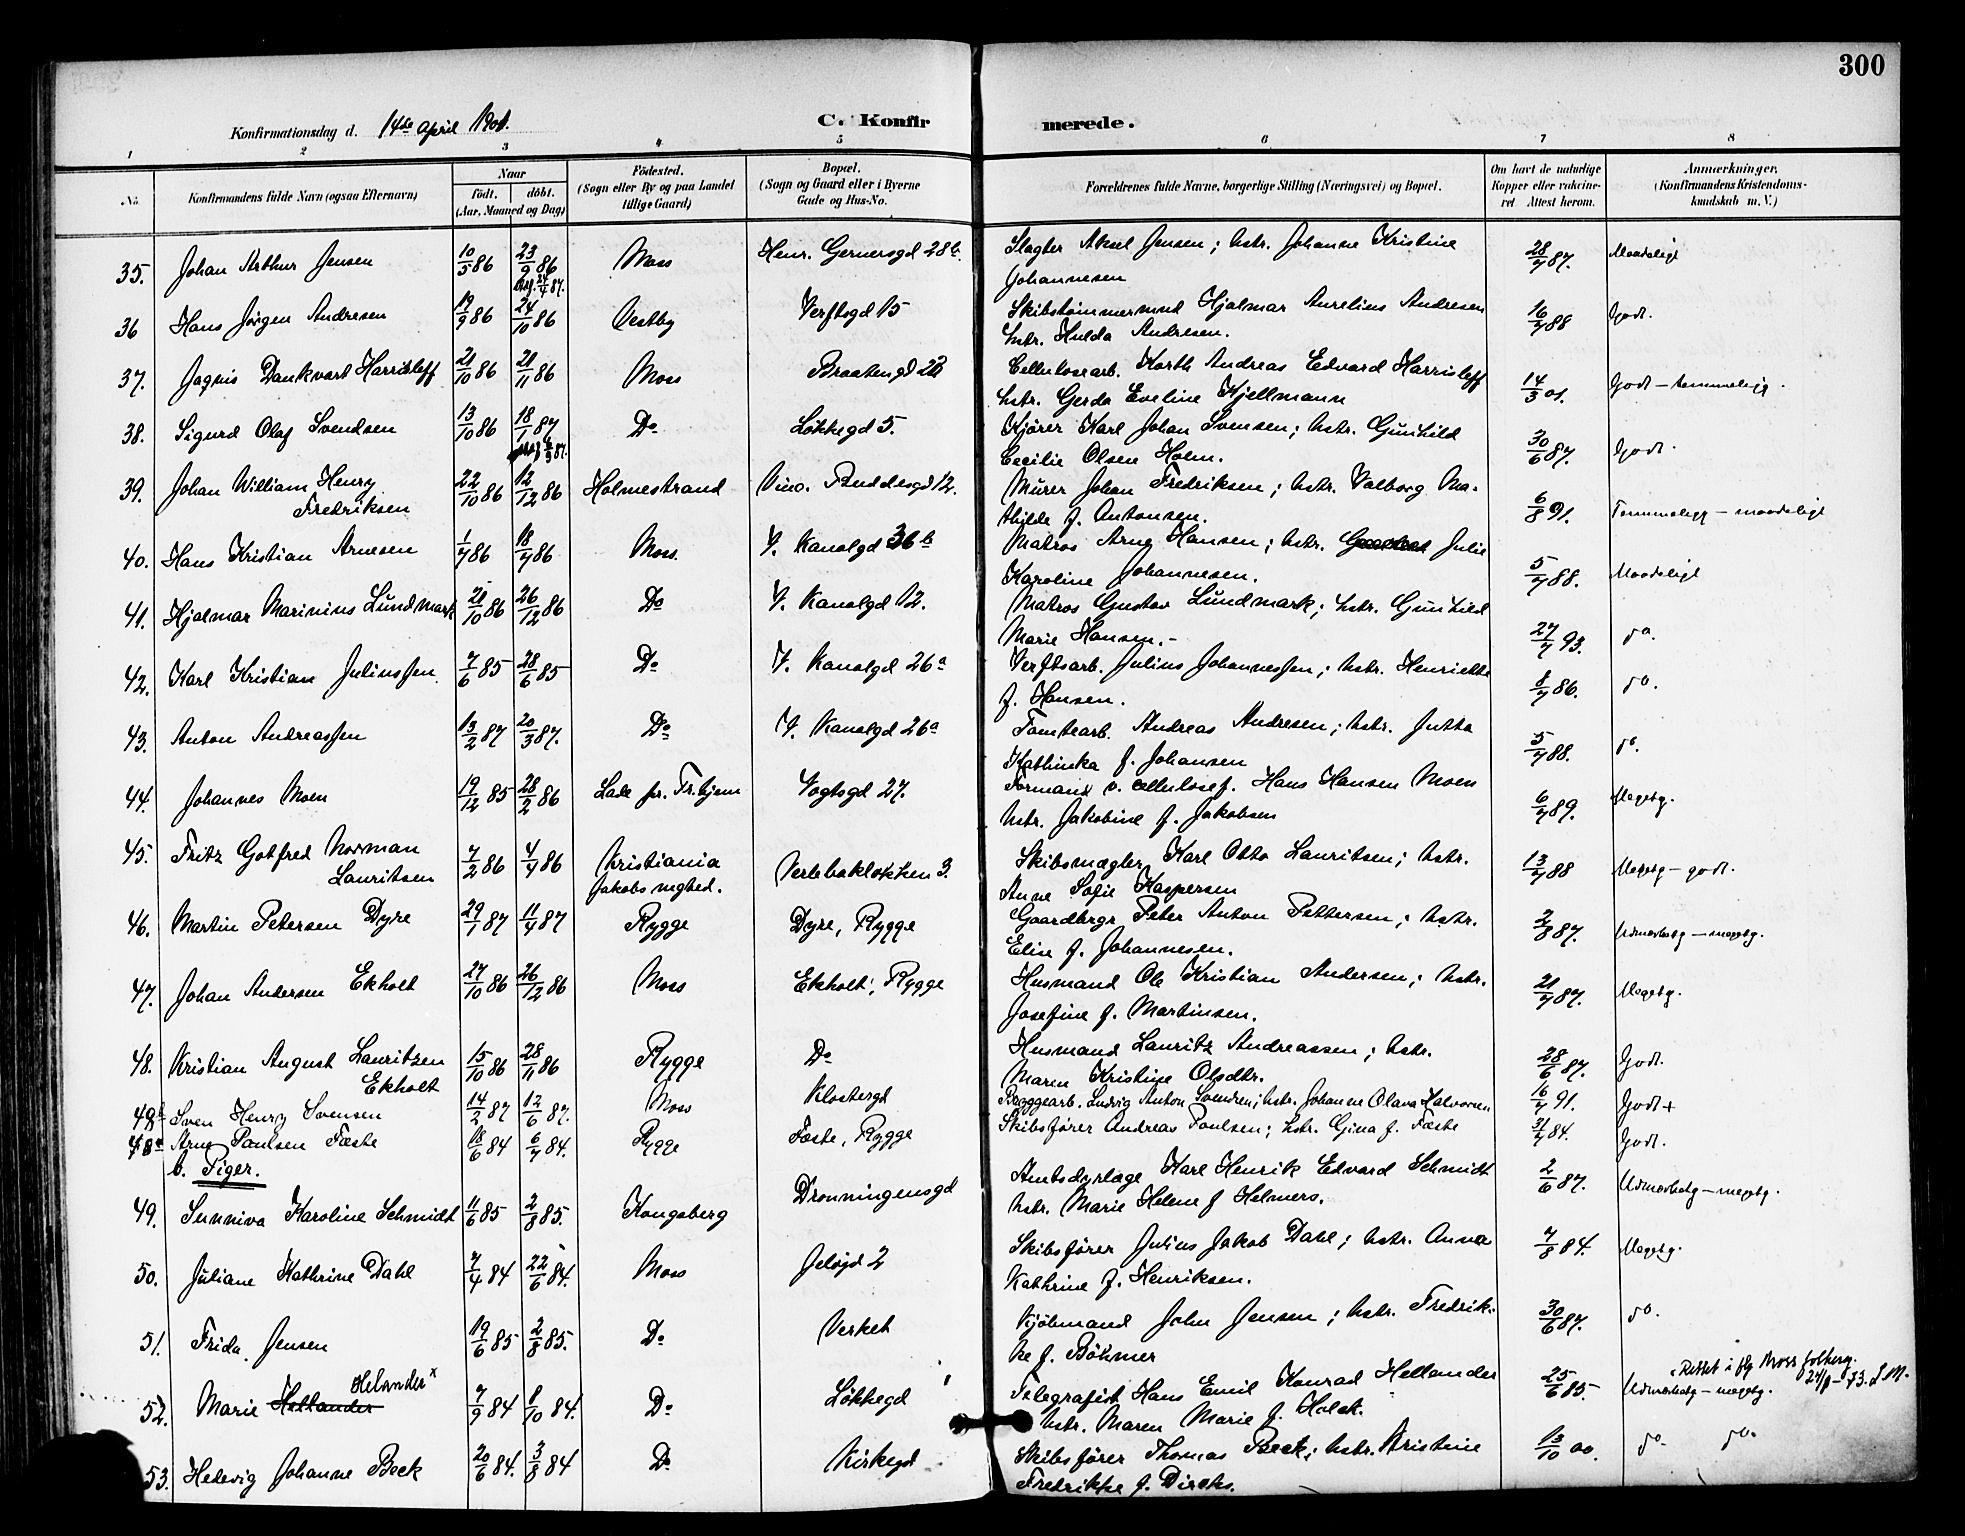 300
Konfirmationsdag d. 14de April 1901.
C. Konfirmerede.
1 2 3 4 5 6 7 8
No. Konfirmandens fulde Navn (ogsaa Efternavn) Naar født. døbt. (Aar, Maaned og Dag) Fødested. (Sogn eller By og paa Landet tillige Gaard) Bopæl. (Sogn og Gaard eller i Byerne Gade og Hus-No. Forældrenes fulde Navne, borgerlige Stilling (Næringsvei) og Bopæl. Om havt de naturlige Kopper eller vakcineret Attest herom. Anmærkninger, (Konfirmandens Kristendomskundskab m. V.)
35. Johan Arthur Jensen 10/5 86 23/9 86 Moss Henr. Gernersgd 28b. Slagter Aksel Jensen; hstr. Johanne Kristine 28/7 87. Maadeligt
Johannesen
36 Hans Jørgen Andresen 19/9 86 24/10 86 Vestby Verftsgd 15 Skibstømmermnd Hjalmar Aurelius Andresen 16/7 88 Godt.
hstr. Hulda Andresen.
37. Jagnis Dankvart Harrisleff 21/10 86 21/11 86 Moss Braatengd 28 Cellulosearb. Korth Andreas Edvard Harrisleff 14/3 01. Godt - temmelig.
hstr. Gerda Eveline Kjellmann
38. Sigurd Olaf Svendsen 13/10 86 18/1 87 Do Løkkegd 5. Kjører Karl Johan Svensen; hstr. Gunhild 30/6 87. Godt.
Cecilie Olsen Holm.
39. Johan William Henry 22/10 86 12/12 86 Holmestrand Vinc. Buddesgd 12. Murer Johan Fredriksen; hstr. Valborg Ma- 6/8 91. Temmeligg - maadeligt
Fredriksen thilde f. Antonsen.
40. Hans Kristian Arnesen 1/7 86 18/7 86 Moss. V. Kanalgd 36b Matros Arne Hansen; hstr. Julie 5/7 88. Maadeligt
Karoline Johannesen.
41. Hjalmar Marinius Lundmark 21/10 86 26/12 86 Do V. Kanalgd 12. Matros Gustav Lundmark; hstr. Gunhild 27/7 93. do.
Marie Hansen. -
42. Karl Kristian Juliussen 7/6 85 28/6 85 Do V. Kanalgd 26a Verftsarb. Julius Johannessen; hstr. Henriette 8/7 86. do.
f. Hansen.
43. Anton Andreassen 13/2 87 20/3 87. Do V. Kanalgd 26a Tomtearb. Andreas Andresen; hstr. Jutta 5/7 88. do.
Kathinka f. Johansen
44. Johannes Moen 19/12 85 28/2 86 Lade pr. Tr.hjem Vogtsgd 27. Formand v. cellulosef. Hans Hansen Moen 6/7 89. Megetg.
hstr. Jakobine f. Jakobsen
45. Fritz Gotfred Norman 7/2 86 4/4 86 Kristiania Verlebakløkken 3. Skibsmægler Karl Otto Lauritsen; hstr. 13/7 88 Megetg - godt.
Lauritsen Jakobs mghed. Anne Sofie Kaspersen
46. Martin Petersen Dyre 29/1 87 11/4 87 Rygge Dyre, Rygge Gaardbrgr Peter Anton Pettersen; hstr. 2/8 87. Udmærketg - megetg.
Elise f. Johannesen.
47. Johan Andersen Ekholt 27/10 86 26/12 86 Moss Ekholt, Rygge Husmand Ole Kristian Andersen; hstr. 21/7 87. Megetg.
Josefine f. Martinsen.
48. Kristian August Lauritzen 15/10 86 28/11 86 Rygge Do Husmand Lauritz Andreassen; hstr. 28/6 87. Godt.
Ekholt Maren Kristine Olsdtr.
48b Sven Henry Svensen 14/2 87 12/6 87. Moss Klostergd Bryggearb. Ludvig Anton Svendsen; hstr. Johanne Olava Halvorsen 16/7 91. Godt +
48a Arne Paulsen Fæste 18/6 84 6/7 84. Rygge Fæste, Rygge Skibsfører Andreas Poulsen; hstr. Gina f. Fæste 31/7 84. Godt.
b. Piger.
49. Sunniva Karoline Schmidt 11/6 85 2/8 85. Kongsberg Dronningensgd Amtsdyrlæge Karl Henrik Edvard Schmidt 2/6 87. Udmærketg - megetg.
hstr. Marie Helene f Helmers.
50. Juliane Kathrine Dahl 7/4 84 22/6 84. Moss Jeløgd 2 Skibsfører Julius Jakob Dahl; hstr. Anna 7/8 84. Megetg.
Kathrine f. Henriksen.
51. Frida Jensen 19/6 85 2/8 85. Do Verket Kjøbmand John Jensen; hstr. Fredrik- 30/6 87. do.
ke f. Böhmer
52. Marie Hellander Helander x 7/9 84 8/10 84. Do Løkkegd Telegrafist Hans Emil Konrad Hellander 25/6 85 Udmærketg - megetg.
x Rettet i flg Moss folkereg. 27/8-73.
hstr. Maren Marie f. Holck.
53. Hedevig Johanne Beck 20/6 84. 3/8 84 Do Kirkegd Skibsfører Thomas Beck; hstr. Kristine 13/10 00. do. do.
Fredrikke f. Dircks.